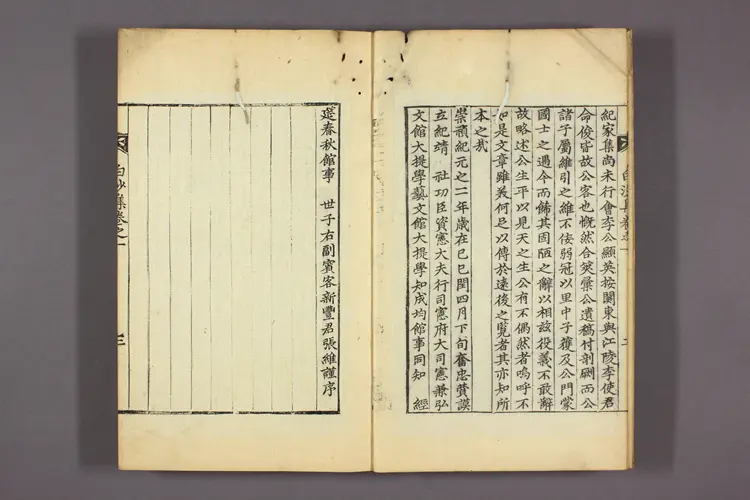 紀家集尚未行會李公顯英按關東與江陵李使君
命俊皆故公客也慨然合筴彙公遺稿付剞劂而公
諸子屬維引之維不佞弱冠以里中子獲及公門蒙
國士之遇今而飾其固陋之辭以相玆役義不敢辭
故略述公生平以見天之生公有不偶然者嗚呼不
如是文章雖美何足以傳於遠後之覽者其亦知所
本之哉
崇禎紀元之二年歲在己巳閏四月下旬奮忠贊謨
立紀靖 社功臣資憲大夫行司憲府大司憲兼弘
文館大提學藝文館大提學知成均館事同知 經
筵春秋館事 世子右副賓客新豐君張維謹序
白沙集卷之一
二
白沙集卷之一
三